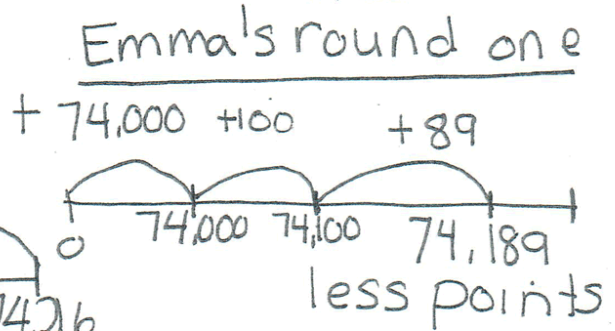 Emma's round one
+ 74,000 +100 +89
0 74,000 74,100 74,189
less points